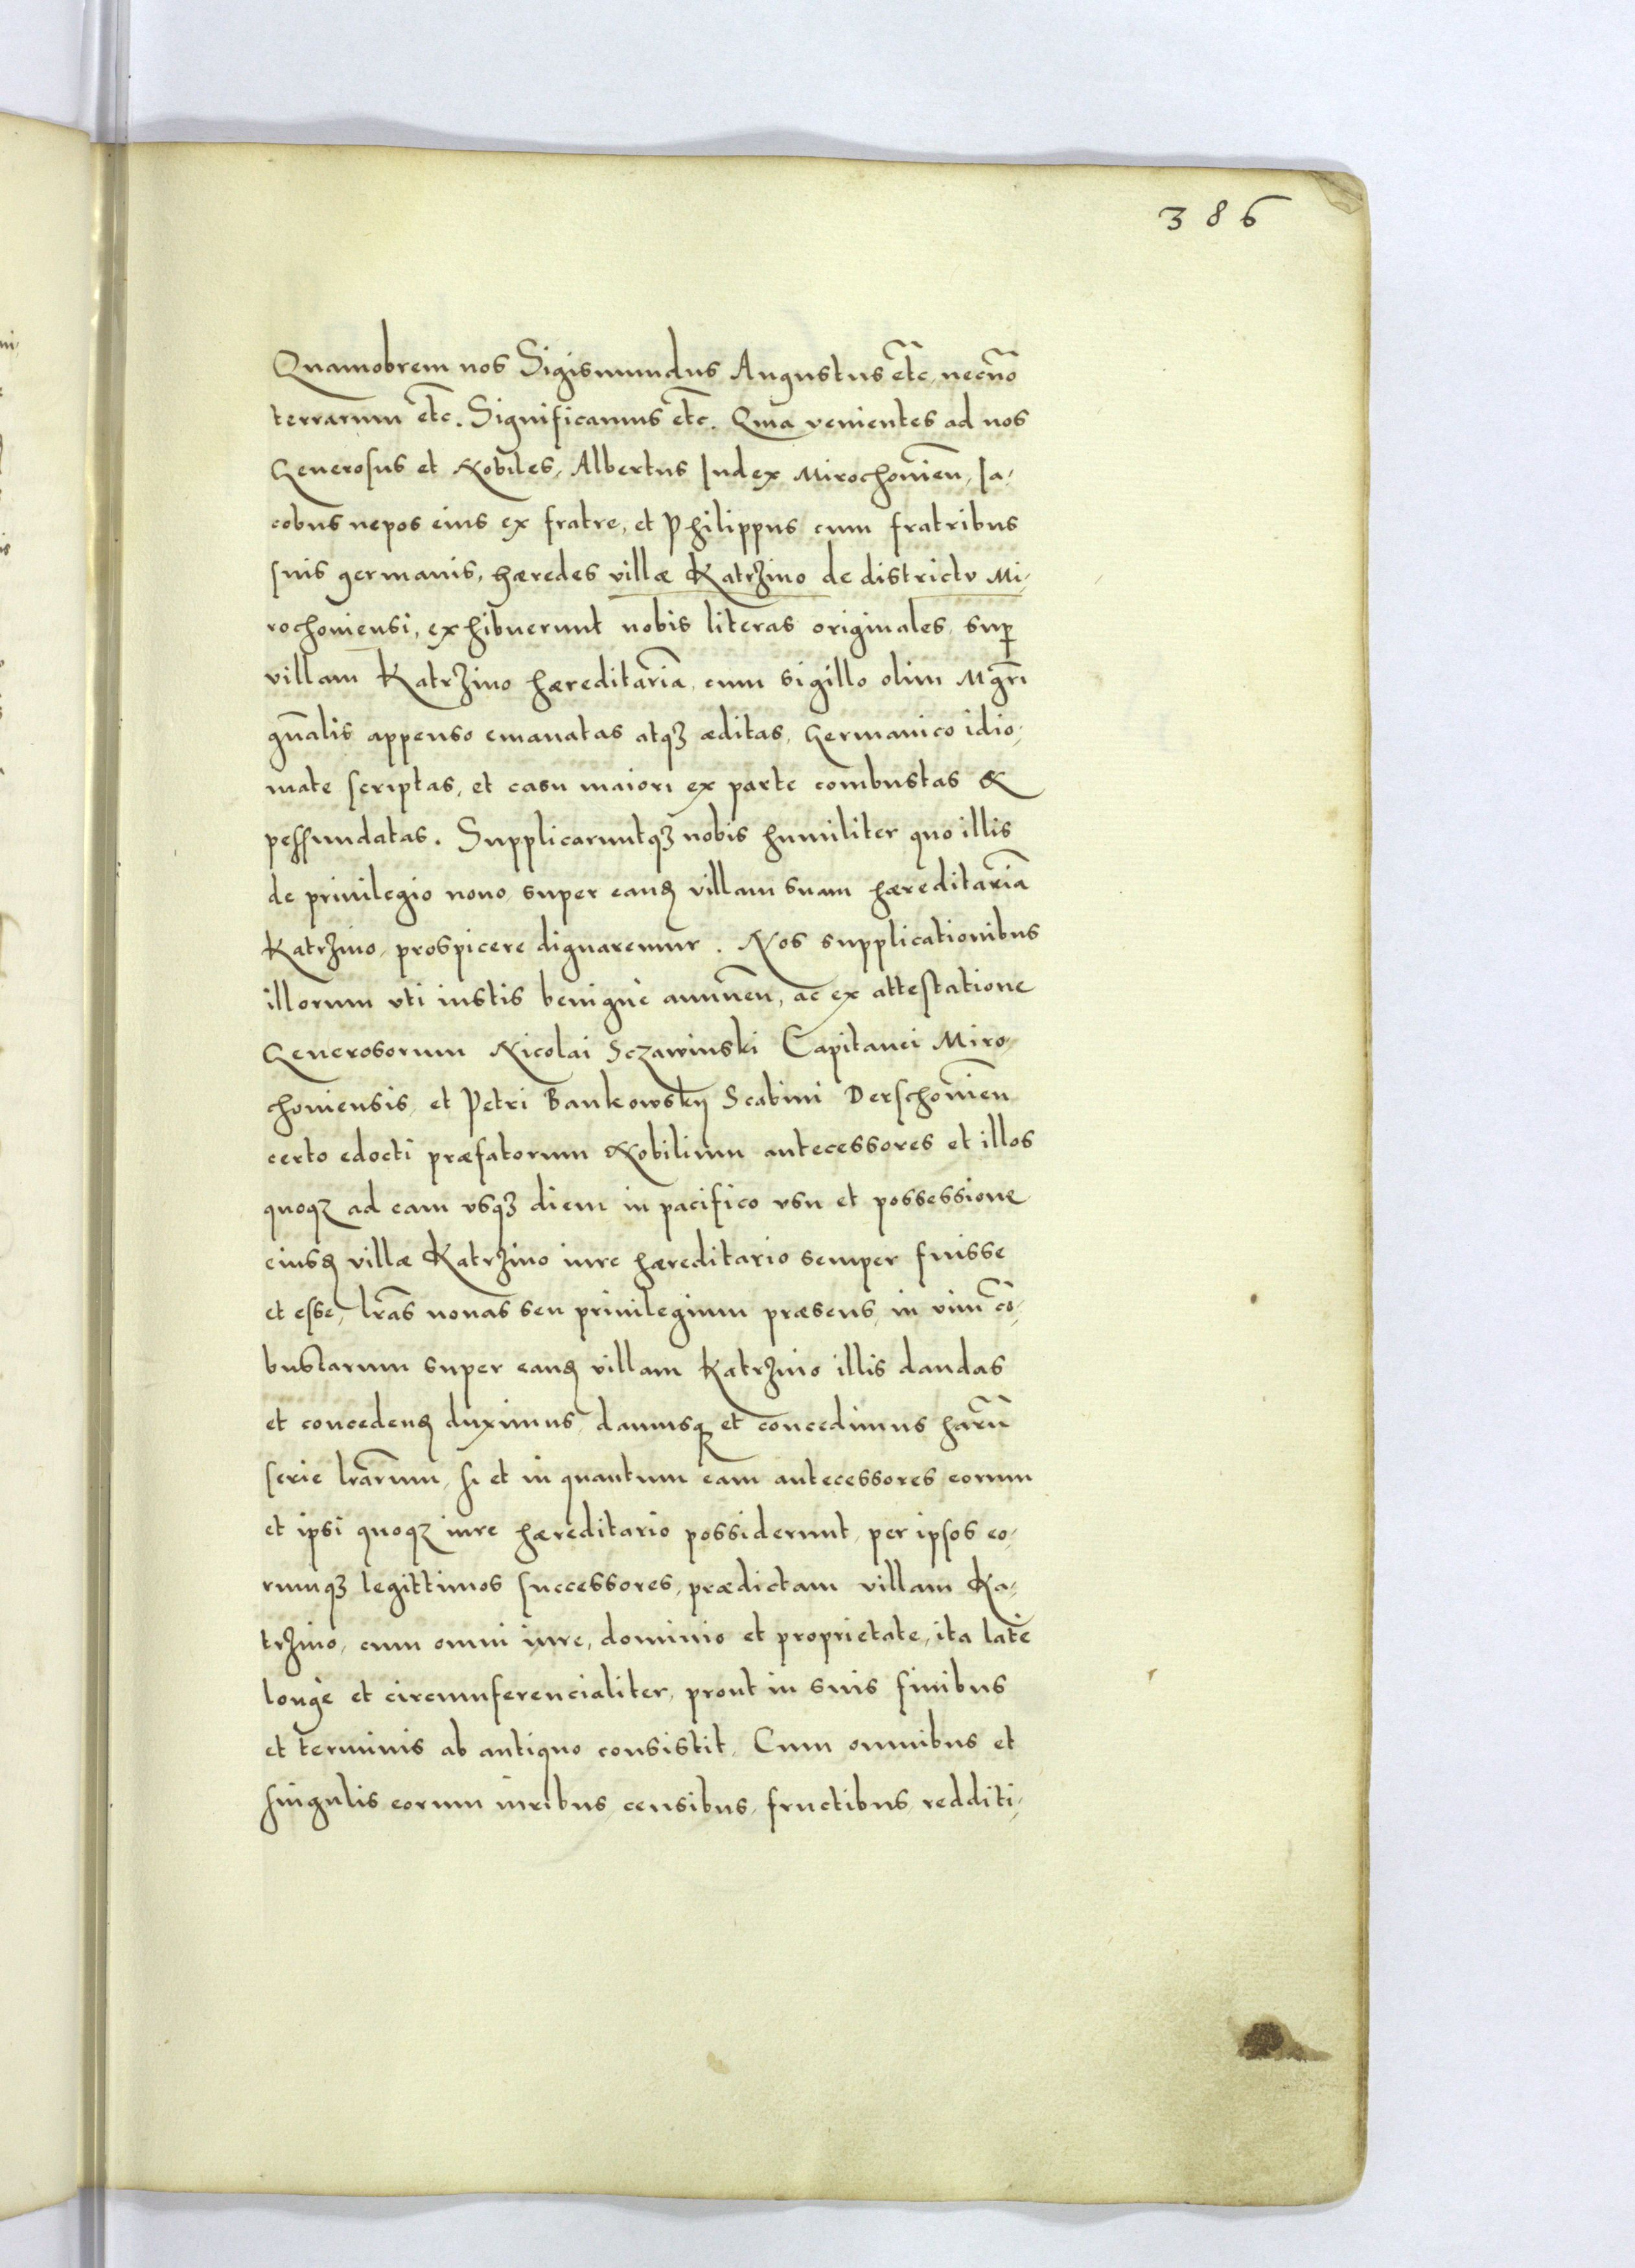 386
Quamobrem nos Sigismundus Augustus etc̃, necnõ
terrarum etc̃. Significamus etc̃. Quia venientes ad nos
Generosus et Nobiles, Albertus Iudex Mirochouień, Ia-
cobus nepos eius ex fratre, et Philippus cum fratribus
suis germanis, hæredes villæ Katrzino de districtv Mi-
rochouiensi, exhibuerunt nobis literas originales, suꝑ
villam Katrzino hæreditariã, cum sigillo olim Mgr̃i
gñalis appenso emanatas atqꝫ æditas, Germanico idio-
mate scriptas, et casu maiori ex parte combustas &
pessundatas. Supplicaruntqꝫ nobis humiliter quo illis
de priuilegio nouo super eandꝫ villam suam hæreditariã
Katrzino, prospicere dignaremur. Nos supplicationibus
illorum vti iustis benignè annueñ, ac ex attestatione
Generosorum Nicolai Sczawinski Capitanei Miro-
chouiensis, et Petri Bankowskij Scabini Derschouień
certo edocti præfatorum Nobilium antecessores et illos
quoqꝫ ad eam vsqꝫ diem in pacifico vsu et possessione
eiusdꝫ villæ Katrzino iure hæreditario semper fuisse
et esse, lr̃as nouas seu priuilegium præsens, in vim cõ-
bustarum super eandꝫ villam Katrzino illis dandas
et concedendꝫ duximus, damusqꝫ et concedimus harũ
serie lr̃arum, si et in quantum eam antecessores eorum
et ipsi quoqꝫ iure hæreditario possiderunt, per ipsos eo-
rumqꝫ legittimos successores, prædictam villam Ka-
trzino, cum omni iure, dominio et proprietate, ita latè
longè et circumferencialiter, prout in suis finibus
et terminis ab antiquo consistit. Cum omnibus et
singulis eorum iuribus, censibus, fructibus, redditi-